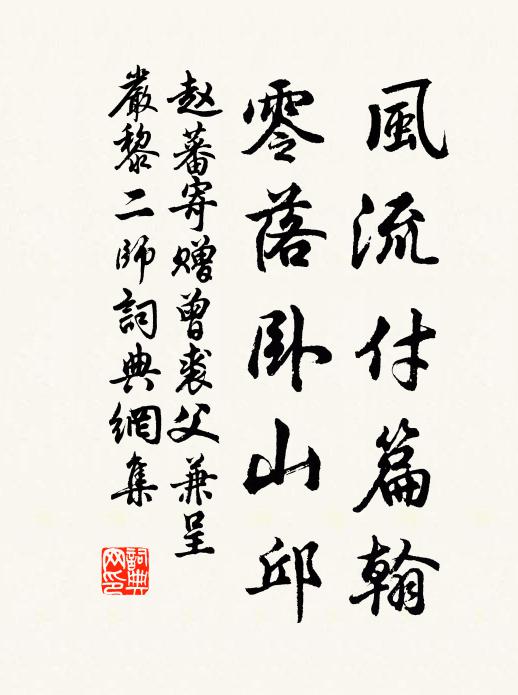 風流付篇翰
零落卧山邱
赵蕃寄赠曾裘父兼呈
嚴黎二师詞典網集
詞典網印